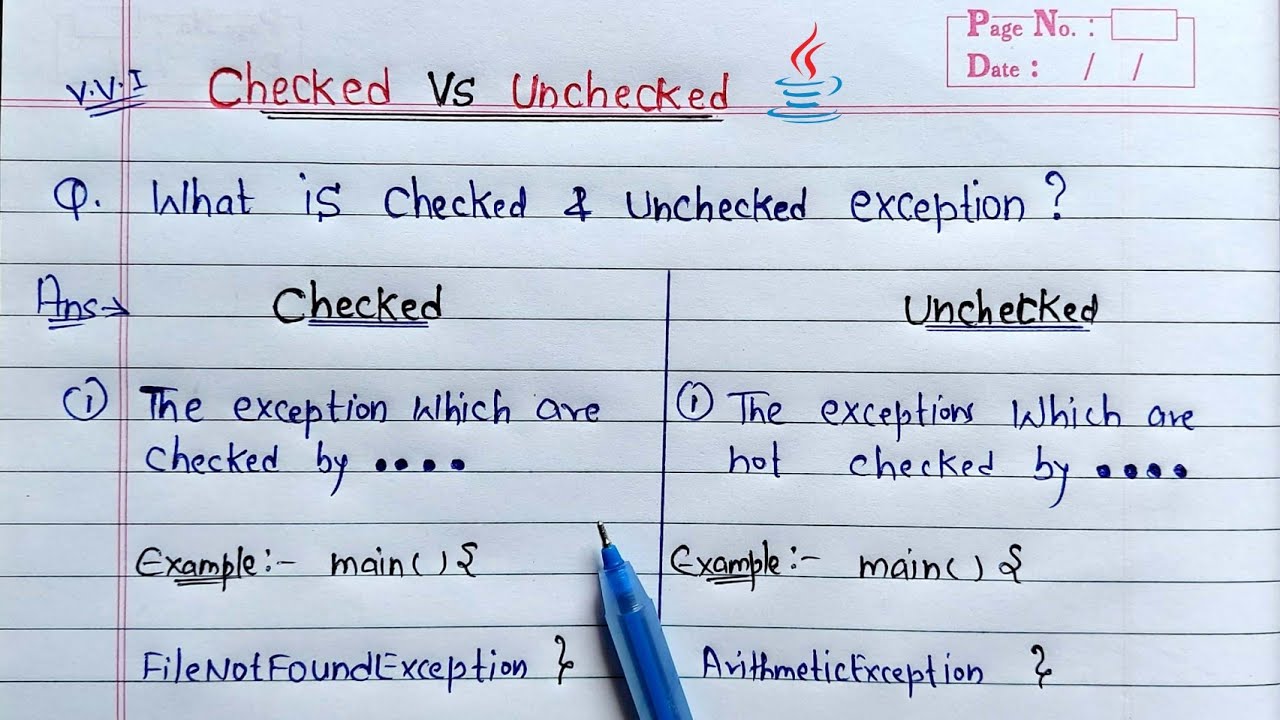 Page No. :
Date : / /
V.V.I Checked Vs Unchecked
Q. What is checked & Unchecked exception?
Ans→ Checked
Unchecked
① The exception which are
checked by ••••
① The exceptions which are
not checked by ••••
Example:- main() {
FileNotFoundException }
Example:- main() {
ArithmeticException }